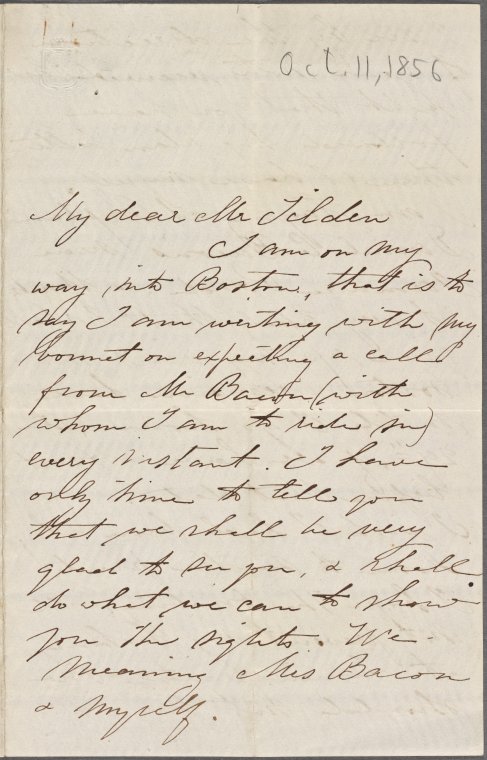 Oct. 11, 1856
My dear Mr Tilden
I am on my
way into Boston, that is to
say I am writing with my
bonnet on expecting a call
from Mr Bacon (with
whom I am to ride in)
every instant. I have
only time to tell you
that we shall be very
glad to see you, & shall
do what we can to show
you the sights. We
meaning Mrs Bacon
& myself.